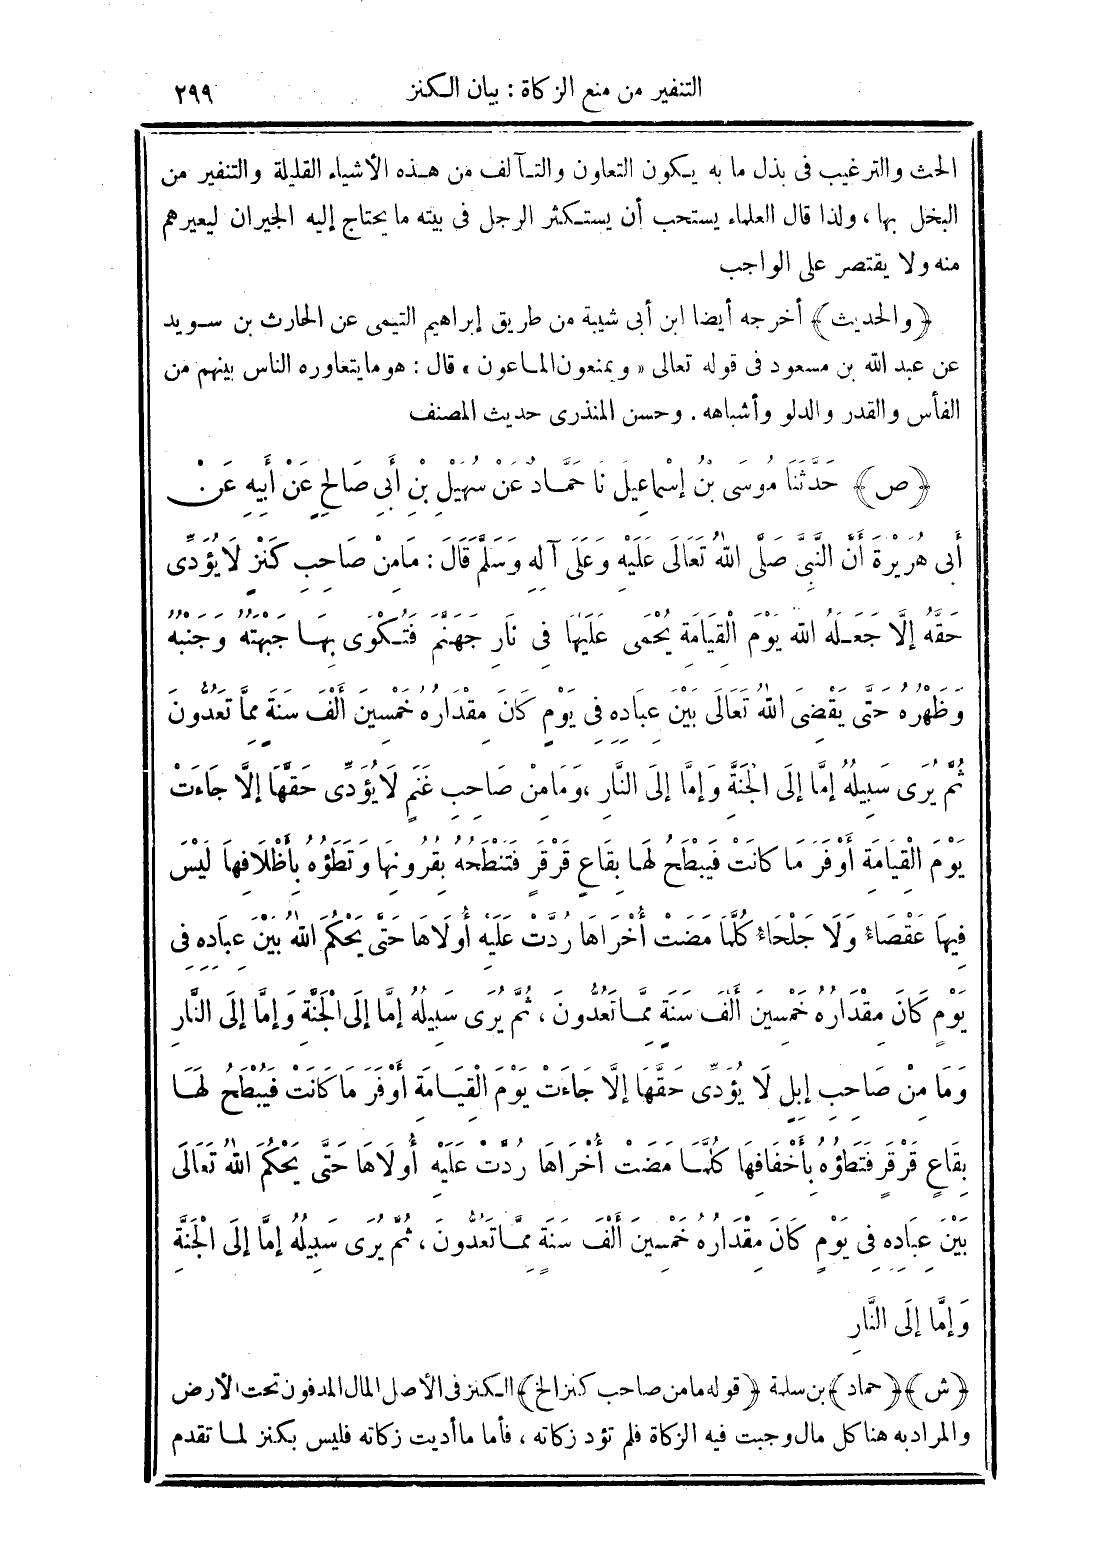 التنفير من منع الزكاة : بيان الكنز ٢٩٩
الحث والترغيب فى بذل ما به يكون التعاون والتآلف من هذه الأشياء القليلة والتنفير من
البخل بها ، ولذا قال العلماء يستحب أن يستكثر الرجل فى بيته ما يحتاج إليه الجيران ليعيرهم
منه ولا يقتصر على الواجب
﴿والحديث﴾ أخرجه أيضا ابن أبى شيبة من طريق إبراهيم التيمى عن الحارث بن سويد
عن عبد الله بن مسعود فى قوله تعالى « ويمنعون الماعون » قال : هو ما يتعاوره الناس بينهم من
الفأس والقدر والدلو وأشباهه . وحسن المنذرى حديث المصنف
﴿ص﴾ حَدَّثَنَا مُوسَى بْنُ إِسْمَاعِيلَ نَا حَمَّادٌ عَنْ سُهَيْلِ بْنِ أَبِى صَالِحٍ عَنْ أَبِيهِ عَنْ
أَبِى هُرَيْرَةَ أَنَّ النَّبِىَّ صَلَّى اللهُ تَعَالَى عَلَيْهِ وَعَلَى آلِهِ وَسَلَّمَ قَالَ : مَا مِنْ صَاحِبِ كَنْزٍ لَا يُؤَدِّى
حَقَّهُ إِلَّا جَعَلَهُ اللهُ يَوْمَ الْقِيَامَةِ يُحْمَى عَلَيْهَا فِى نَارِ جَهَنَّمَ فَتُكْوَى بِهَا جَبْهَتُهُ وَجَنْبُهُ
وَظَهْرُهُ حَتَّى يَقْضِىَ اللهُ تَعَالَى بَيْنَ عِبَادِهِ فِى يَوْمٍ كَانَ مِقْدَارُهُ خَمْسِينَ أَلْفَ سَنَةٍ مِمَّا تَعُدُّونَ
ثُمَّ يُرَى سَبِيلُهُ إِمَّا إِلَى الْجَنَّةِ وَإِمَّا إِلَى النَّارِ ، وَمَا مِنْ صَاحِبِ غَنَمٍ لَا يُؤَدِّى حَقَّهَا إِلَّا جَاءَتْ
يَوْمَ الْقِيَامَةِ أَوْفَرَ مَا كَانَتْ فَيُبْطَحُ لَهَا بِقَاعٍ قَرْقَرٍ فَتَنْطَحُهُ بِقُرُونِهَا وَتَطَؤُهُ بِأَظْلَافِهَا لَيْسَ
فِيهَا عَقْصَاءُ وَلَا جَلْحَاءُ كُلَّمَا مَضَتْ أُخْرَاهَا رُدَّتْ عَلَيْهِ أُولَاهَا حَتَّى يَحْكُمَ اللهُ بَيْنَ عِبَادِهِ فِى
يَوْمٍ كَانَ مِقْدَارُهُ خَمْسِينَ أَلْفَ سَنَةٍ مِمَّا تَعُدُّونَ ، ثُمَّ يُرَى سَبِيلُهُ إِمَّا إِلَى الْجَنَّةِ وَإِمَّا إِلَى النَّارِ
وَمَا مِنْ صَاحِبِ إِبِلٍ لَا يُؤَدِّى حَقَّهَا إِلَّا جَاءَتْ يَوْمَ الْقِيَامَةِ أَوْفَرَ مَا كَانَتْ فَيُبْطَحُ لَهَا
بِقَاعٍ قَرْقَرٍ فَتَطَؤُهُ بِأَخْفَافِهَا كُلَّمَا مَضَتْ أُخْرَاهَا رُدَّتْ عَلَيْهِ أُولَاهَا حَتَّى يَحْكُمَ اللهُ تَعَالَى
بَيْنَ عِبَادِهِ فِى يَوْمٍ كَانَ مِقْدَارُهُ خَمْسِينَ أَلْفَ سَنَةٍ مِمَّا تَعُدُّونَ ، ثُمَّ يُرَى سَبِيلُهُ إِمَّا إِلَى الْجَنَّةِ
وَإِمَّا إِلَى النَّارِ
﴿ش﴾ ﴿حماد﴾ بن سلمة ﴿قوله ما من صاحب كنز الخ﴾ الكنز فى الأصل المال المدفون تحت الأرض
والمراد به هنا كل مال وجبت فيه الزكاة فلم تؤد زكاته ، فأما ما أديت زكاته فليس بكنز لما تقدم